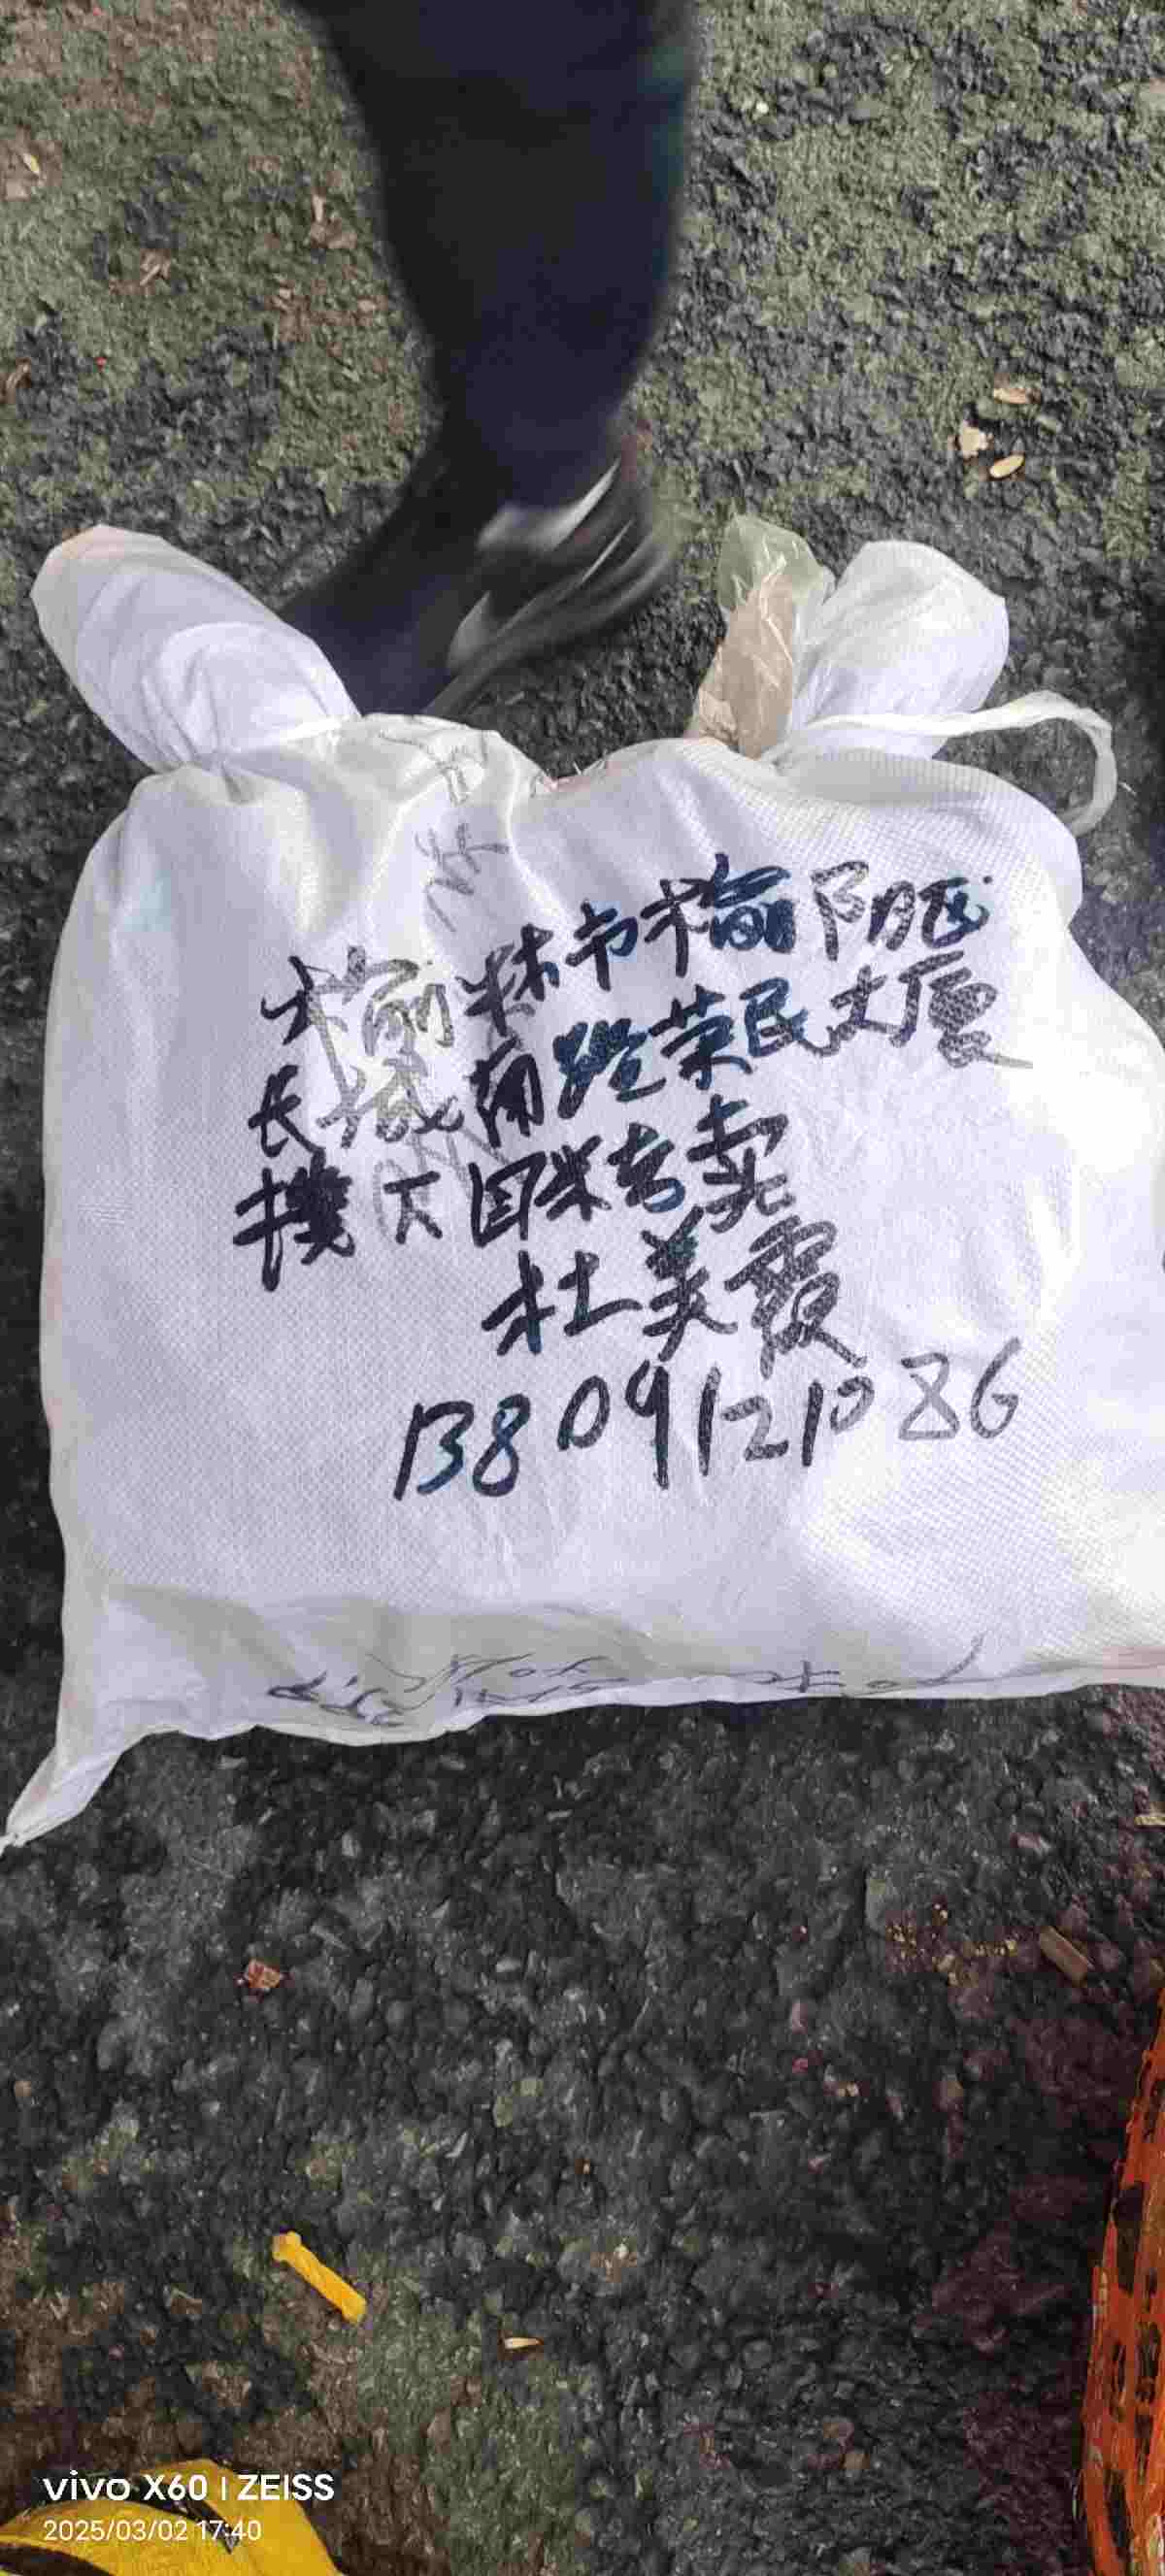 榆林市榆阳区
长城南路荣民大厦
横下国米专卖
杜美霞
13809121086
vivo X60 | ZEISS
2025/03/02 17:40